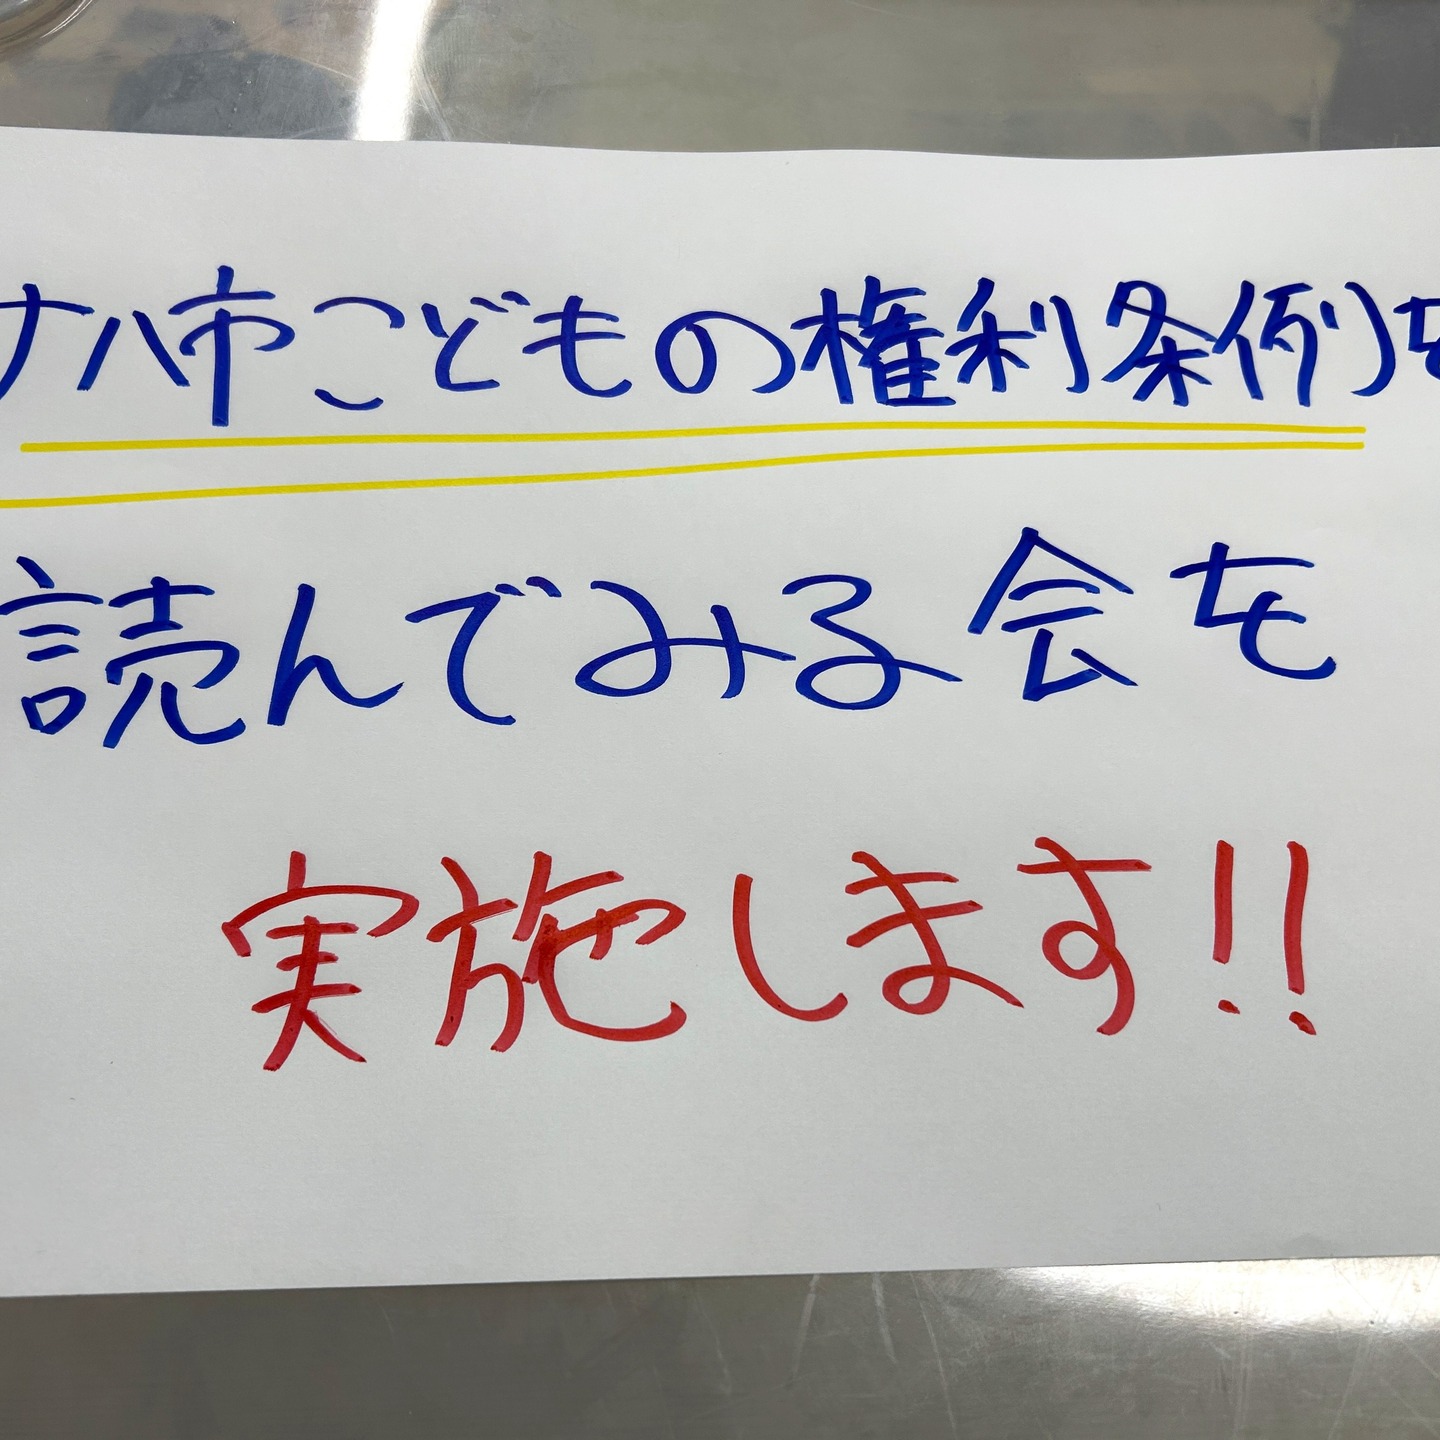 ナハ市こどもの権利条例を
読んでみる会を
実施します!!